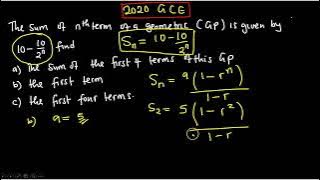 2020 GCE
The sum of nth term of a geometric (GP) is given by
10 - 10/2^n find Sn = 10 - 10/2^n
a) the sum of the first 4 terms of this GP
b) the first term Sn = a(1 - r^n)/1 - r
c) the first four terms. S2 = 5(1 - r^2)/1 - r
b) a = 5